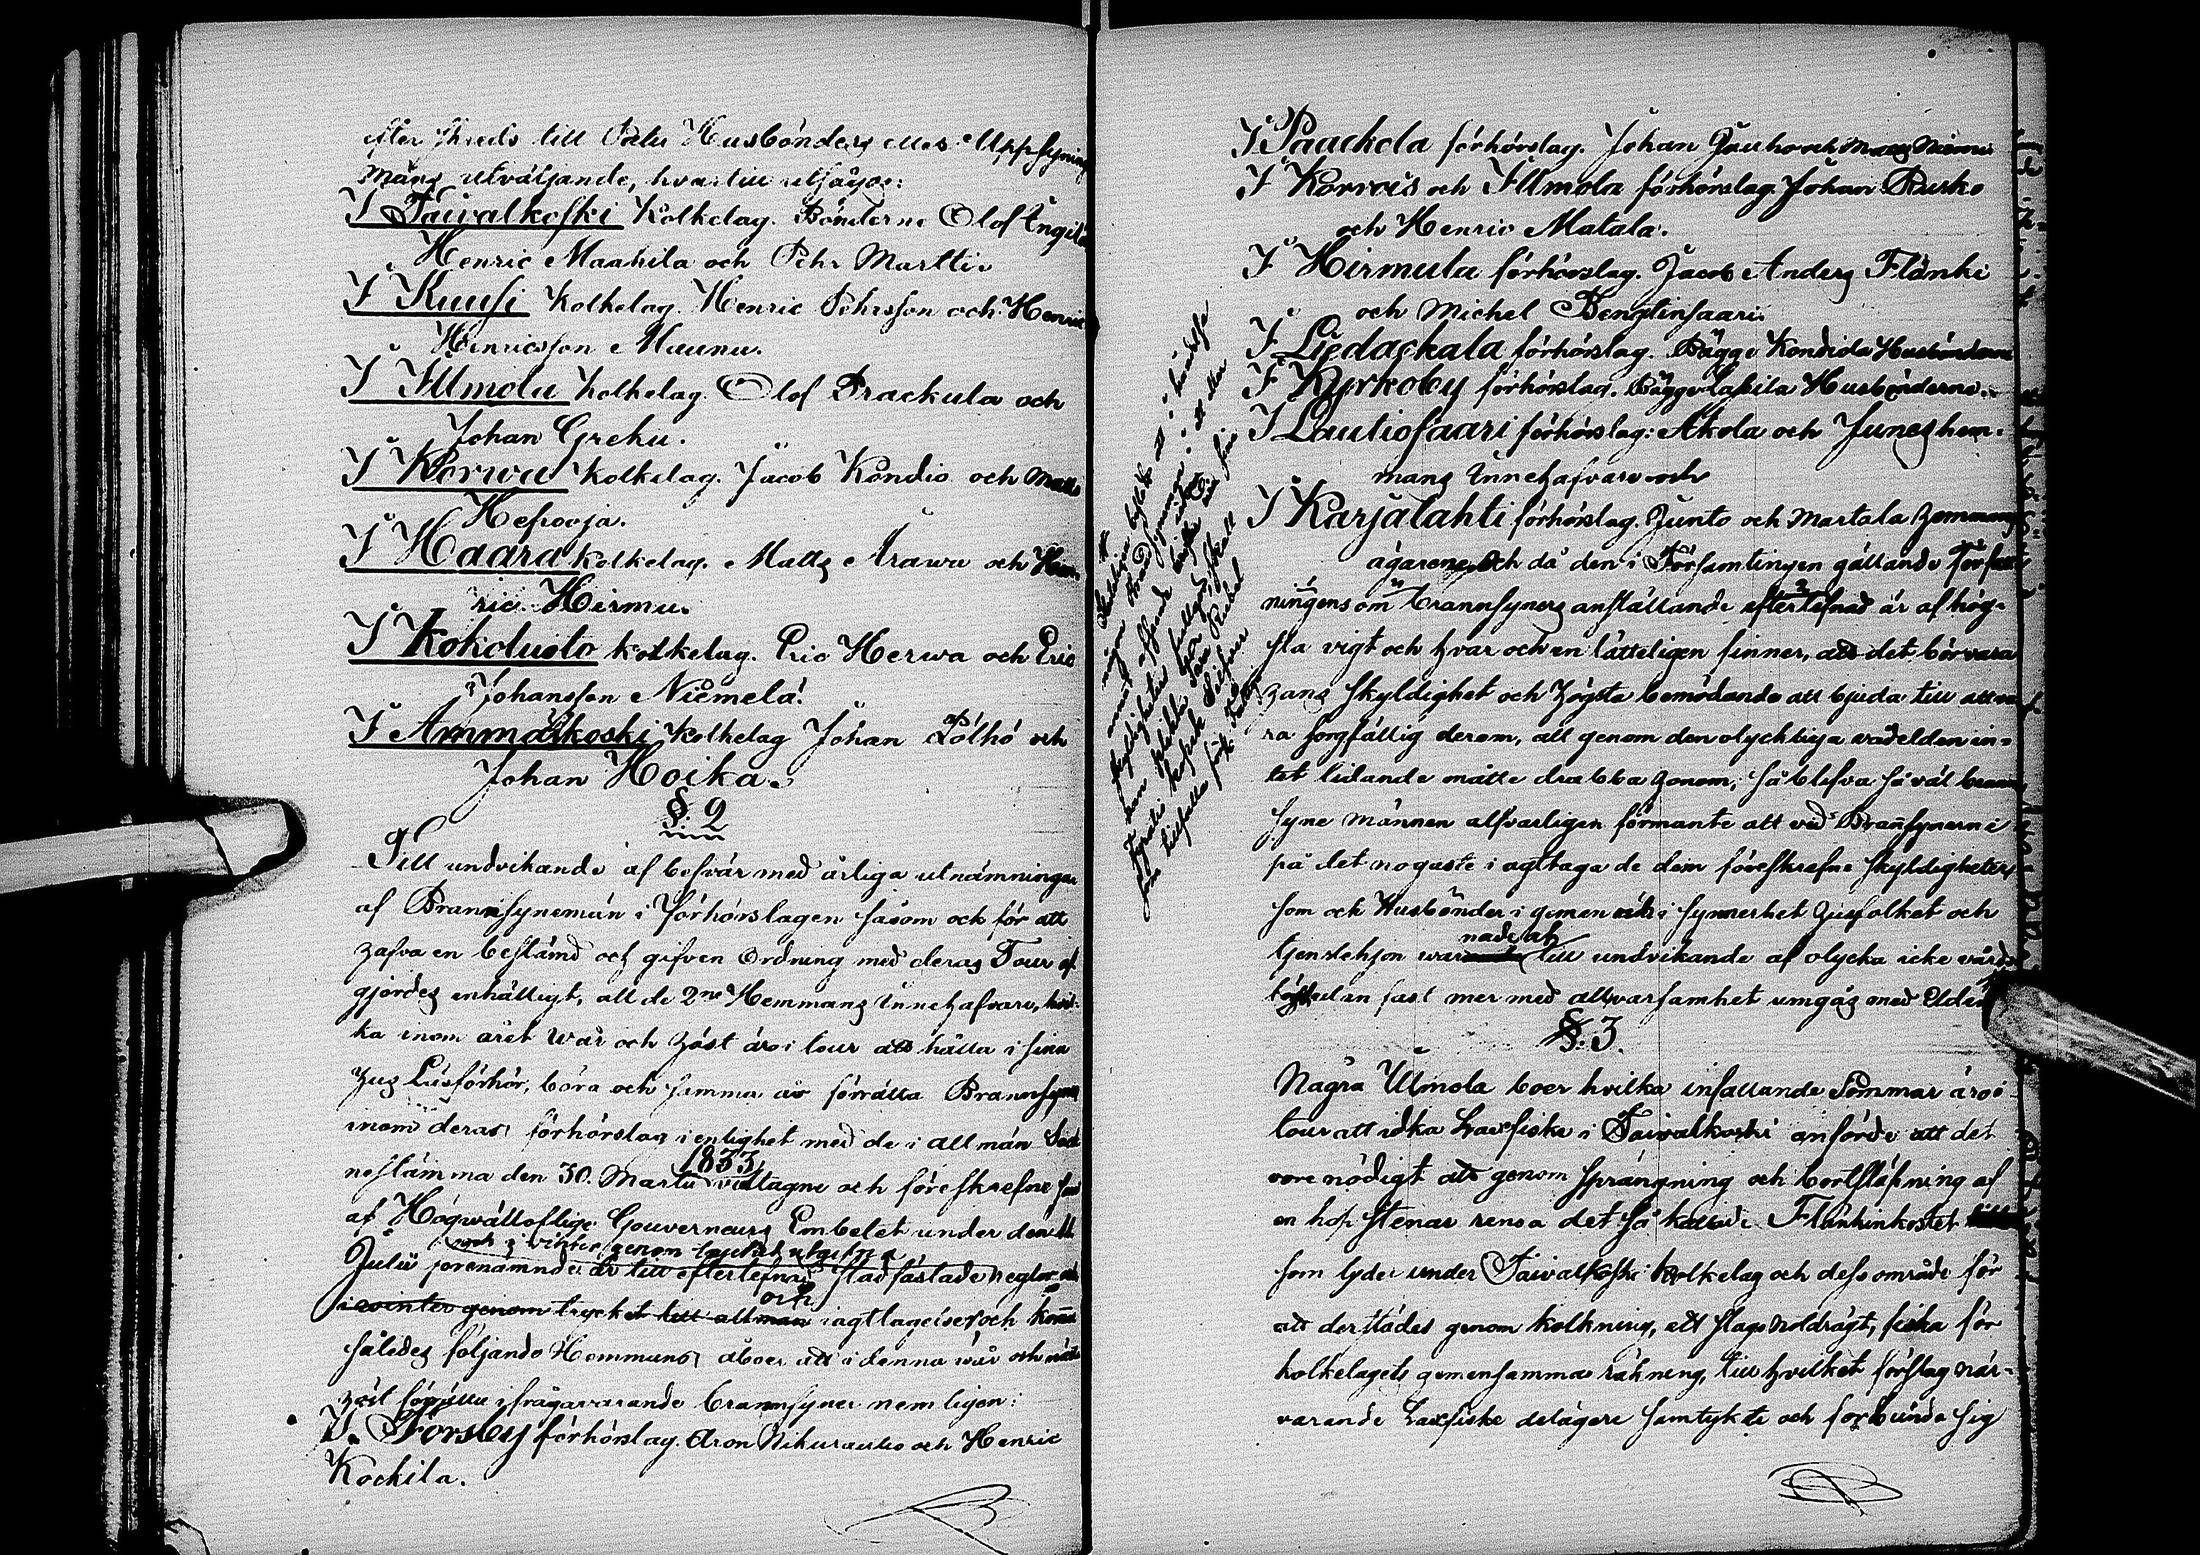 efter skreds till Pate Husbönders eller Uppsynings
Mäns utväljande, hvartill utsågos:
I Taiwalkoski Kolkelag. Bönderne Olof Ångila
Henric Maahila och Pehr Martti.
I Kuusi Kolkelag. Henric Pehrsson och Henric
Henricsson Maunu.
I Illmola Kolkelag. Olof Prackula och
Johan Greku.
I Korwa Kolkelag. Jacob Kondio och Matts
Hepooja.
I Haara Kolkelag. Matts Arawa och Hen-
ric Hirmu.
I Kokoluoto Kolkelag. Eric Herwa och Eric
Johansson Niemelä.
I Ammäskoski Kolkelag Johan Pölhö och
Johan Hoika.
§. 2
Till undvikande af besvär med årliga utnämningar
af Brannsynemän i förhörslagen såsom ock för att
hafva en bestämd och gifven Ordning med deras Tour af
gjordes enhälligt, att de 2ne Hemmans Innehafvare, hvil-
ka inom året wår och höst äro i tour att hålla i sina
hus Läsförhör, böra och samma år förrätta Brannsyner
inom deras förhörslag i enlighet med de i allmän Sock
nestämma den 30. Martii 1833 vidtagne och föreskrefne samt
af Högwälloflige Gouverneurs Embetet under den 11
Julii förenämnde år till efterlefnad stadfästade reglor och
och i vinter genom trycket utgifna
i winter genom trycket till allmän iagttagelse och komma
således följande Hemmans åboer att i denna wår och näste
höst förrätta ifrågavarande brannsyner nemligen:
I. Torsby förhörslag. Aron Nikurautio och Henric
Kockila.
I Paackola förhörslag. Johan Jauho och Mats Niemi
I Korwois och Illmola förhörslag. Johan Rusko
och Henric Matala.
I Hirmula förhörslag. Jacob Anders Flänki
och Michel Bengtinsaari.
I Liedackala förhörslag. Bägge Kondida Husbönderne
I Kyrkoby förhörslag. Bägge Lapila Husbönderne.
I Lautiosaari förhörslag: Akola och Junes hem-
mans Innehafvare och
I Karjalahti förhörslag. Junto och Martala hemmans
ägarene, Och då den i Församlingen gällande Författ
ningens om brannsyners anställande efterlefnad är af hög-
sta vigt och hvar och en lätteligen finner, att det bör vara
hans skyldighet och högsta bemödande att bjuda till att va
ra sorgfällig derom, att genom den olyckliga wådelden in-
tet lidande måtte drabba honom, så blefva så väl brann
syne männen alfvarligen förmante att ved Brannsynerne
på det nogaste i agttaga de dem föreskrefne skyldigheter,
som ock Husbönder i gemen och i synnerhet husfolket och
tjenstehjon warnade att till undvikande af olycka icke vårds
löst utan fast mer med allwarsamhet umgås med Elden.
§. 3.
Några Illmola boer hvilka infallande Sommar äro i
tour att idka Laxfiske i Taiwalkoski anförde att det
vore nödigt att genom sprängning och bortsläpning af
en hop stenar rensa det så kallade Flänkinkostet
som lyder under Taiwalkoski Kolkelag och dess område för
att derstädes genom kolkning, ett slags notdrägt, fiska för
kolkelagets gemensamma räkning, till hvilket förslag när-
varande Laxfiske delägare samtykte och förbundo sig